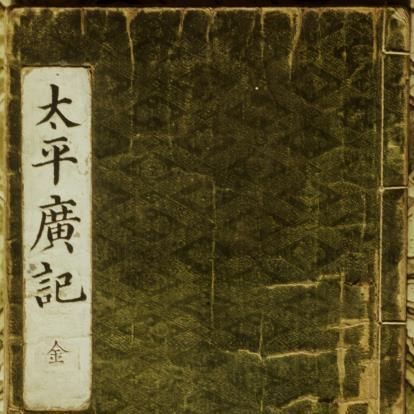 太平廣記
金